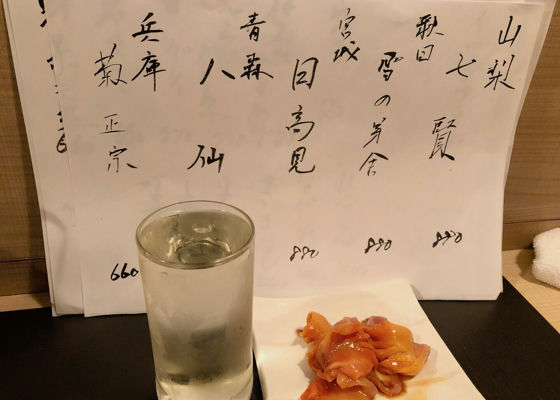 山梨
七賢
880
秋田
雪の茅舎
880
宮城
日高見
880
青森
八仙
兵庫
菊正宗
660